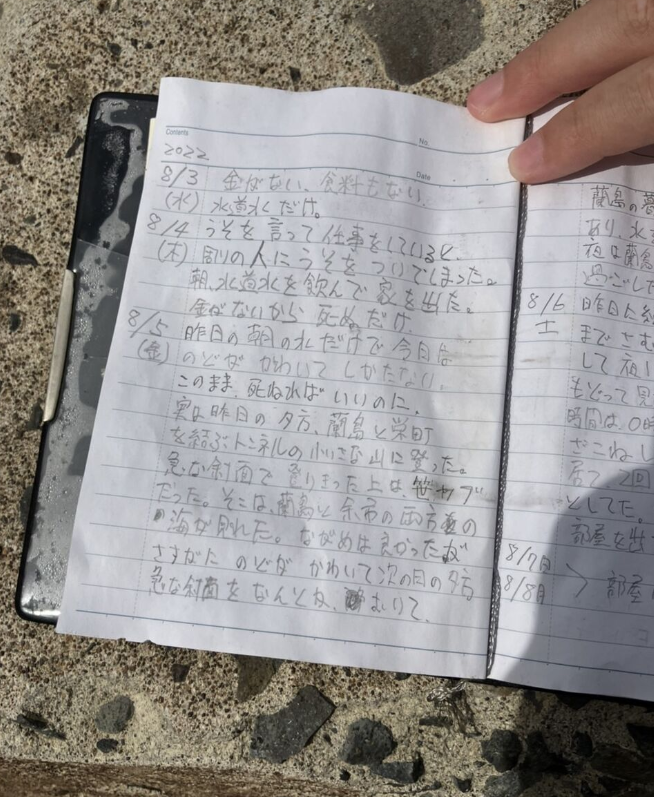 Contents
No.
Date
2022
8/3 金がない、食料もない。
(水) 水道水だけ。
8/4 うそを言って仕事をしていると、
(木) 周りの人にうそをついてしまった。
朝、水道水を飲んで家を出た。
金がないから死ぬだけ
8/5 昨日の朝の水だけで今日は
(金) のどがかわいてしかたない。
このまま、死ねればいいのに、
実は昨日の夕方、蘭島と栄町
を結ぶトンネルの小さな山に登った。
急な斜面で登りきった上は、笹ヤブ
だった。そこは、蘭島と余市の両方の
海が見れた。ながめは良かったが
さすがにのどがかわいて次の日の夕方
急な斜面をなんとか、おりて、
蘭島の
あり、水
夜は蘭島
過ごした
8/6 昨日に
土 まで
して夜
もどって
時間は、0時
ざこねし
居て2回
としてた。
部屋を出
8/7日
8/8月 > 部屋